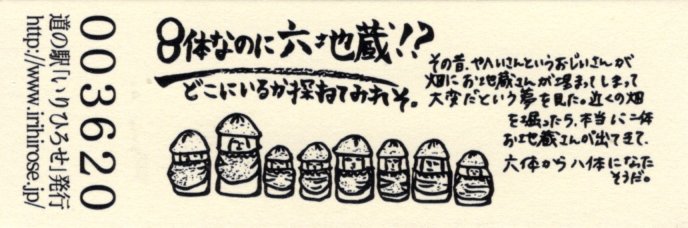 8体なのに六地蔵!!?
どこにいるか探ねてみれそ。
その昔、やへいさんというおじいさんが
畑にお地蔵さんが埋まってしまって
大変だという夢を見た。近くの畑
を掘ったら、本当に二体
お地蔵さんが出てきて、
六体から八体になた
そうだ。
003620
道の駅「いりひろせ」発行
http://www.irihirose.jp/